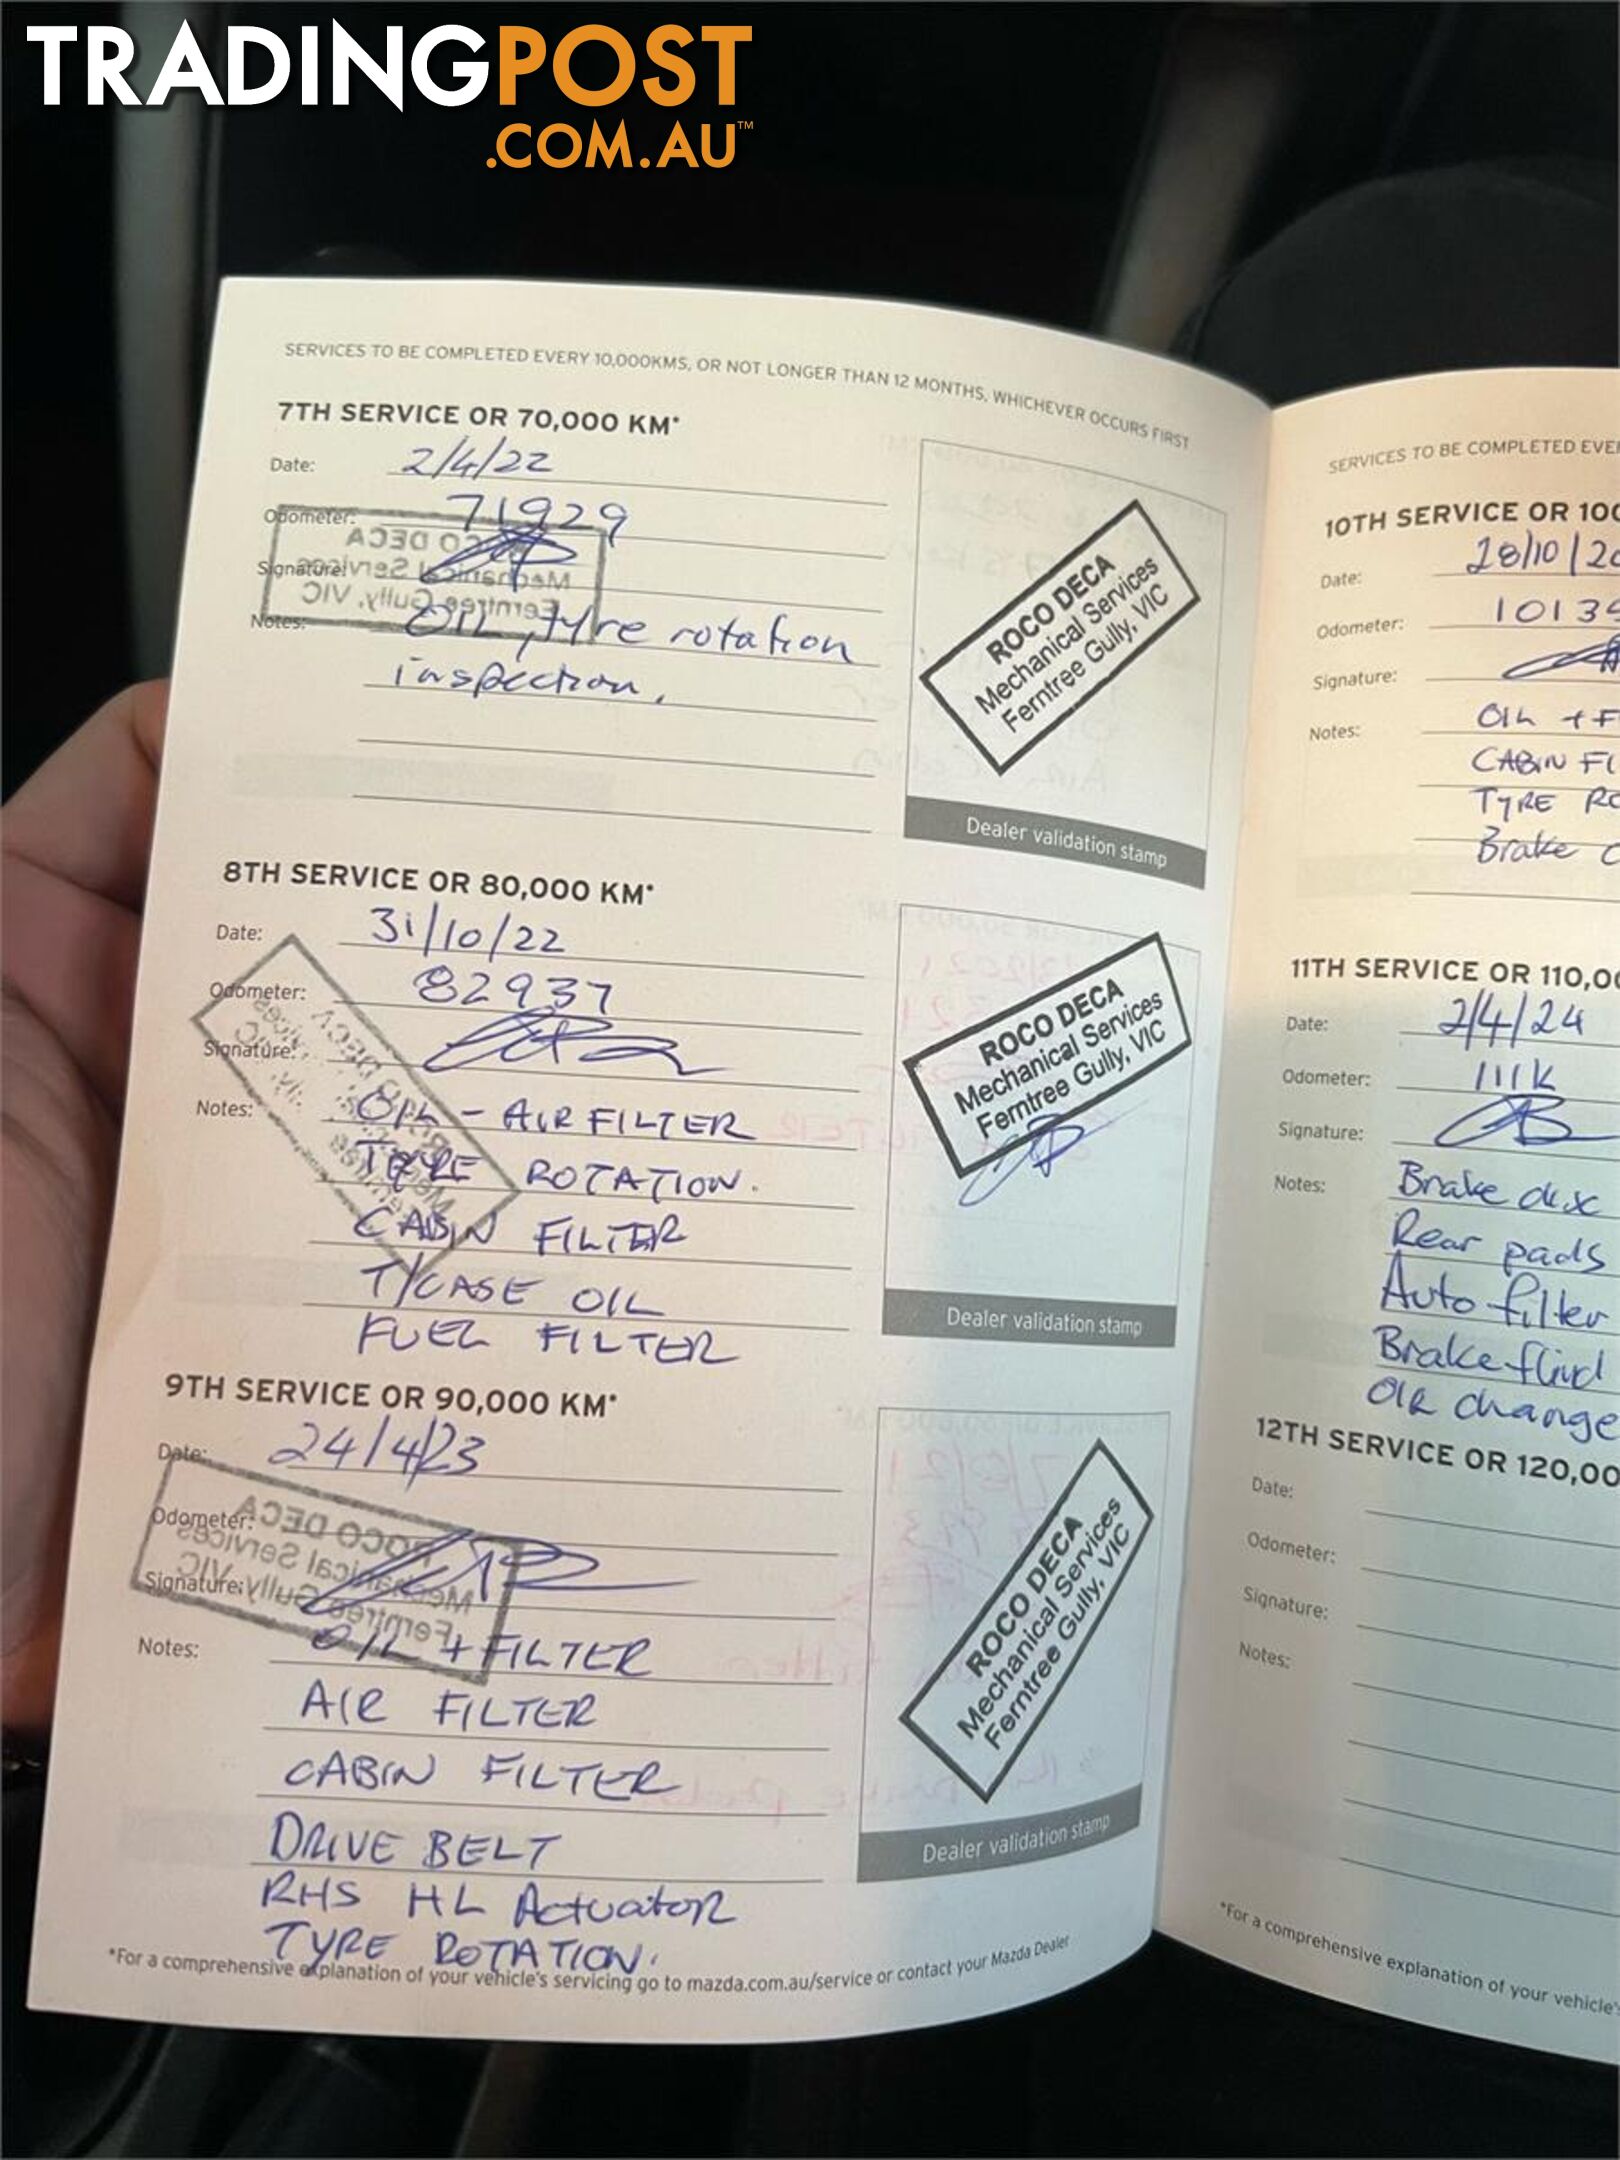 TRADINGPOST
.COM.AU™
SERVICES TO BE COMPLETED EVERY 10,000KMS, OR NOT LONGER THAN 12 MONTHS, WHICHEVER OCCURS FIRST
7TH SERVICE OR 70,000 KM*
Date: 2/4/22
Odometer: 71929
Signature:
Notes: OIL, tyre rotation
inspection.
ROCO DECA
Mechanical Services
Ferntree Gully, VIC
Dealer validation stamp
8TH SERVICE OR 80,000 KM*
Date: 31/10/22
Odometer: 82937
Signature:
Notes: OIL - AIR FILTER
TYRE ROTATION.
CABIN FILTER
T/CASE OIL
FUEL FILTER
ROCO DECA
Mechanical Services
Ferntree Gully, VIC
Dealer validation stamp
9TH SERVICE OR 90,000 KM*
Date: 24/4/23
Odometer:
Signature:
Notes: OIL + FILTER
AIR FILTER
CABIN FILTER
DRIVE BELT
RHS HL Actuator
TYRE ROTATION.
ROCO DECA
Mechanical Services
Ferntree Gully, VIC
Dealer validation stamp
*For a comprehensive explanation of your vehicle's servicing go to mazda.com.au/service or contact your Mazda Dealer
SERVICES TO BE COMPLETED
10TH SERVICE OR
Date: 28/10/
Odometer:
Signature:
Notes: OIL +
CABIN
TYRE
Brake
11TH SERVICE OR 110,0
Date: 2/4/24
Odometer: 111K
Signature:
Notes: Brake disc
Rear pads
Auto filter
Brake fluid
change
12TH SERVICE OR 120,00
Date:
Odometer:
Signature:
Notes:
*For a comprehensive explanation of your vehicle's